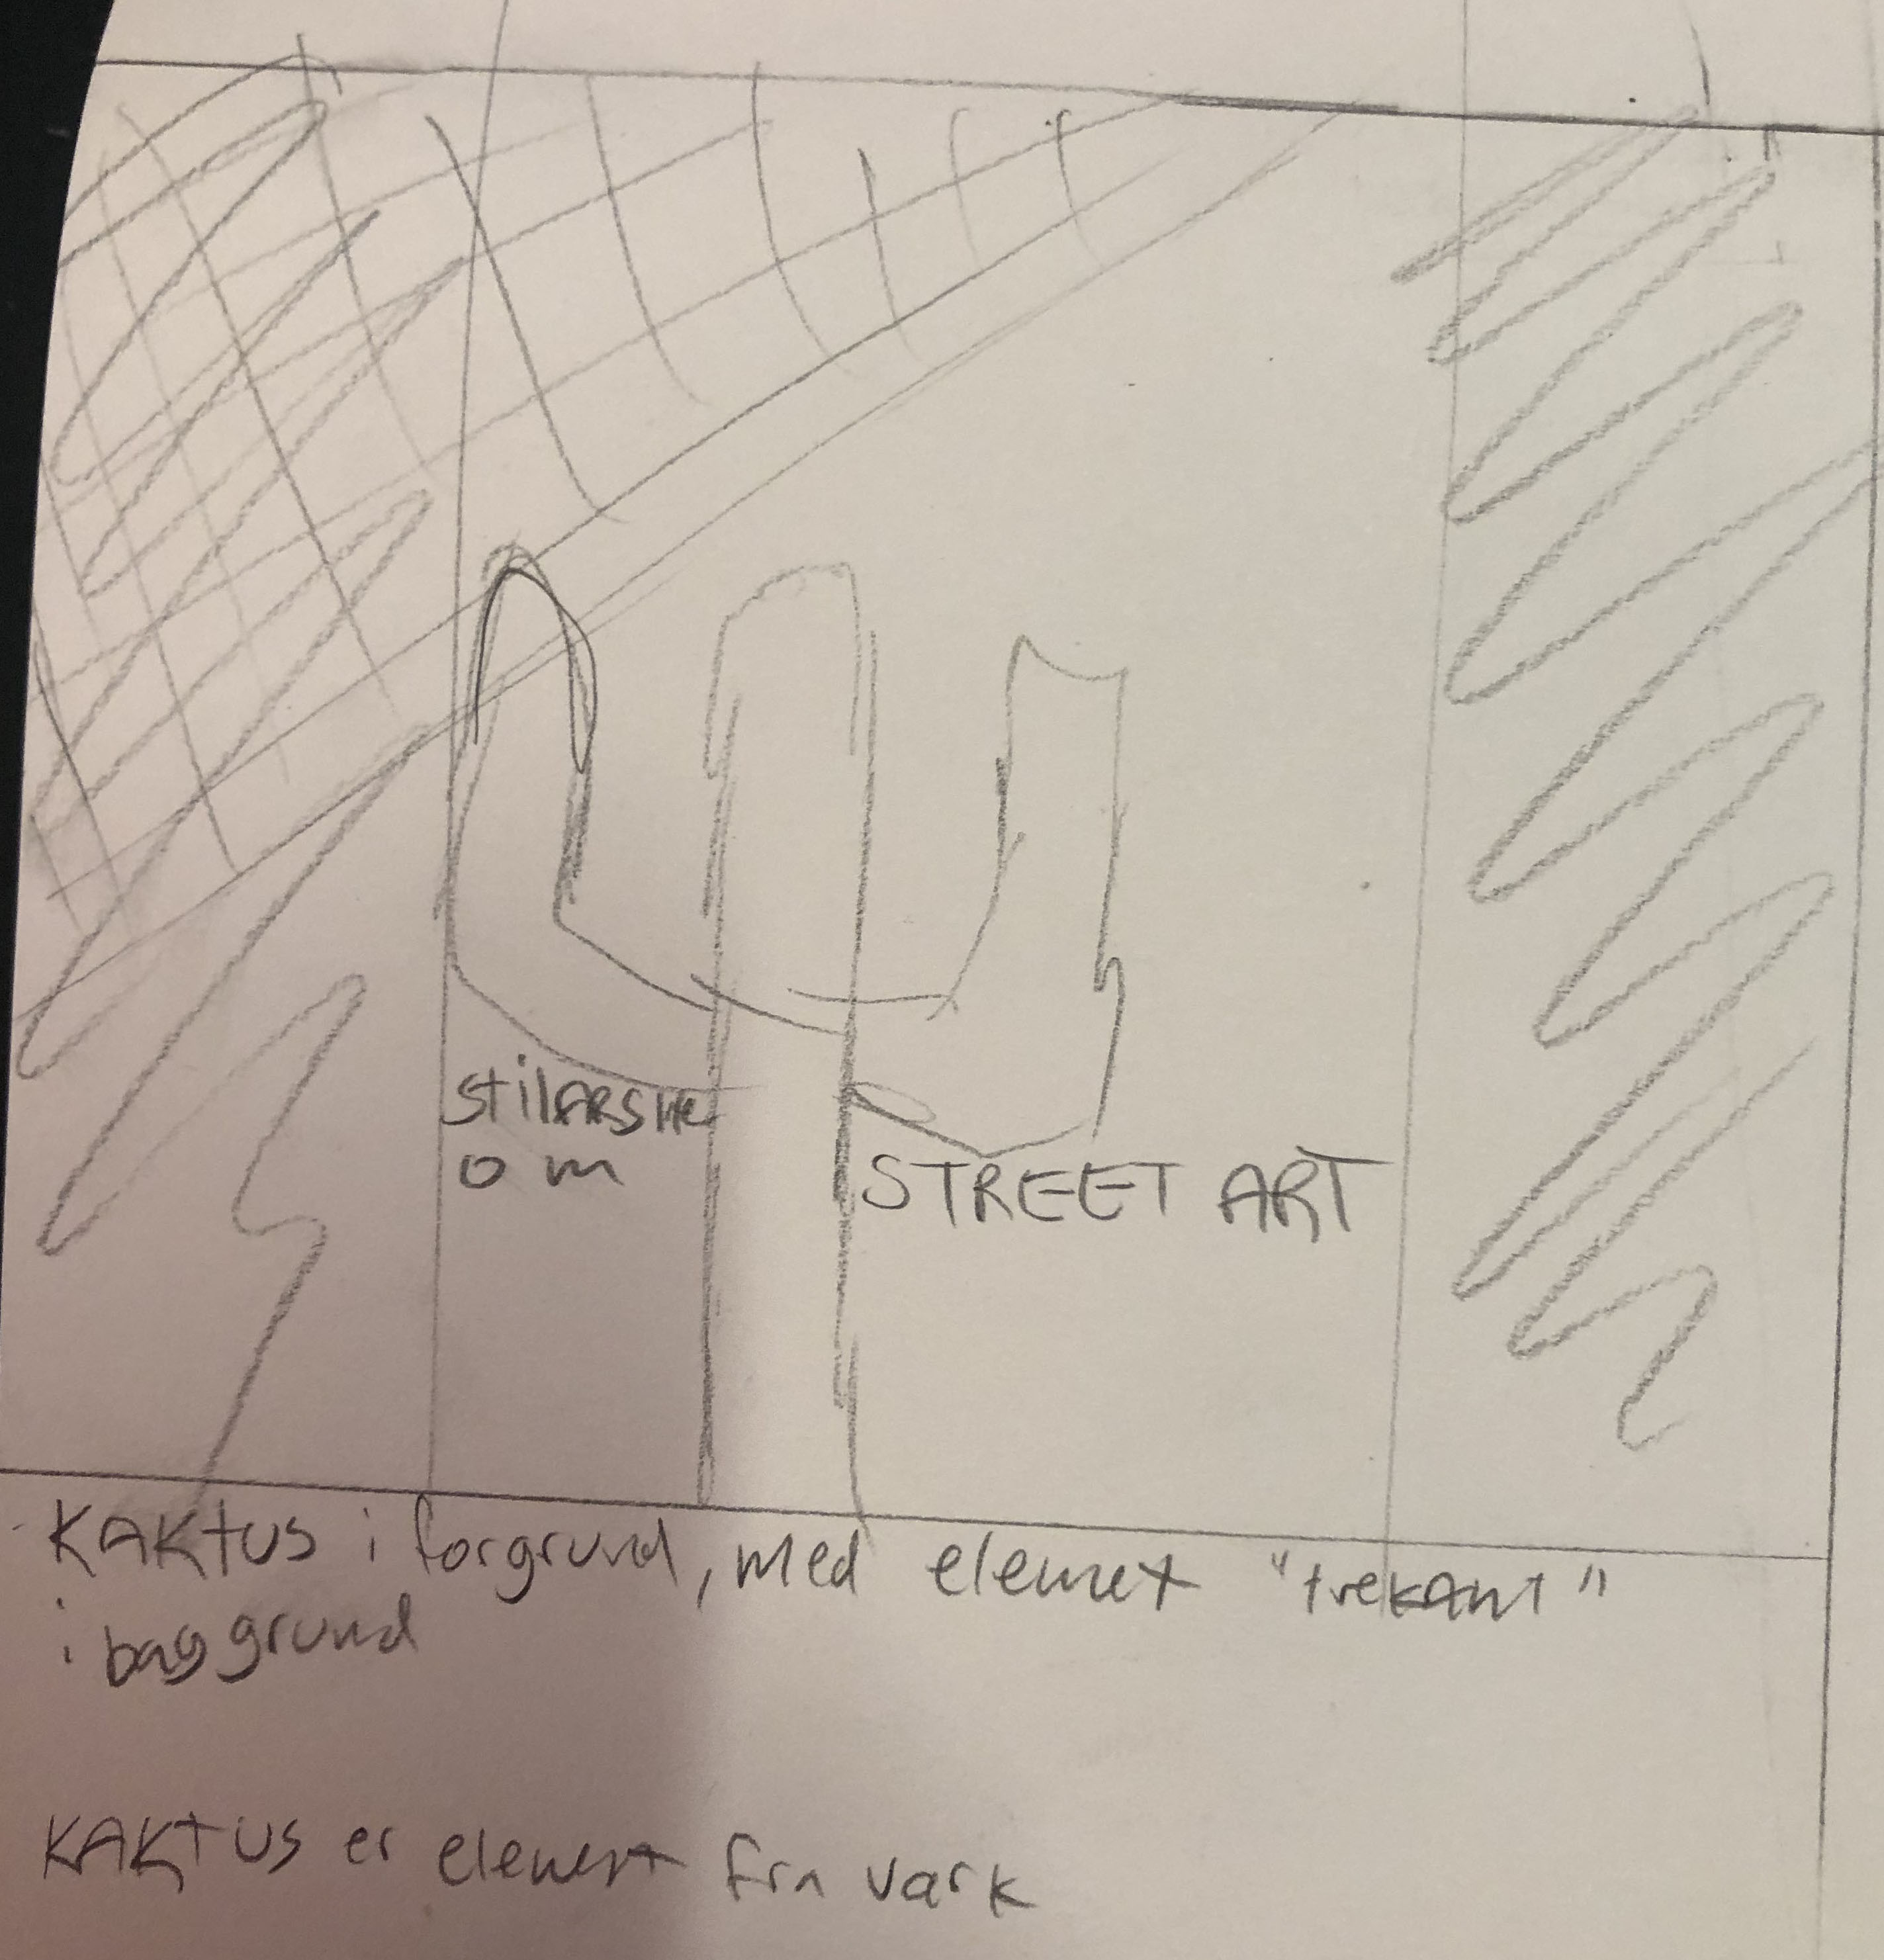 stilARSHE
om
STREET ART
KAKtUS i forgrund, med elemet "trekAnt"
i baggrund
KAKtUS er elemet fra vark